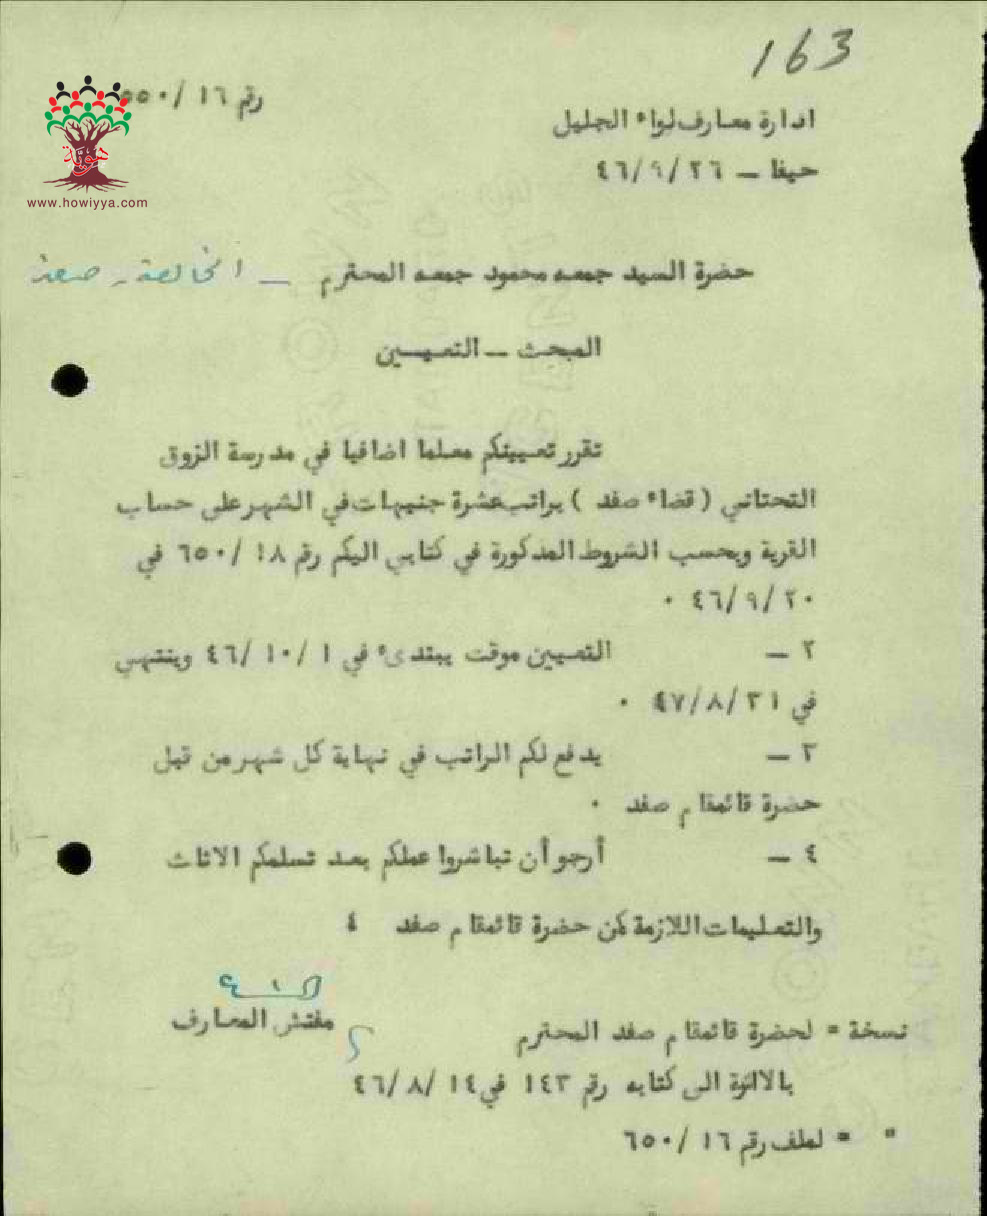 163
رقم ١٦ /٥٥٠
هوية
www.howiyya.com
ادارة معارف لواء الجليل
حيفا — ٤٦/٩/٢٦
حضرة السيد جمعه محمود جمعه المحترم — الخالصة - صفد
المبحث — التعيين
تقرر تعيينكم معلما اضافيا في مدرسة الزوق
التحتاني ( قضاء صفد ) براتب عشرة جنيهات في الشهر على حساب
القرية وبحسب الشروط المذكورة في كتابي اليكم رقم ١٨ /٦٥٠ في
٤٦/٩/٢٠ ٠
٢ — التعيين موقت يبتدىء في ١ /١٠ /٤٦ وينتهي
في ٤٧/٨/٣١ ٠
٣ — يدفع لكم الراتب في نهاية كل شهر من قبل
حضرة قائمقام صفد ٠
٤ — أرجو أن تباشروا عملكم بعد تسلمكم الاثاث
والتعليمات اللازمة من حضرة قائمقام صفد ٤
مفتش المعارف
نسخة = لحضرة قائمقام صفد المحترم
بالاشارة الى كتابه رقم ١٤٣ في ٤٦/٨/١٤
" = لملف رقم ١٦ /٦٥٠